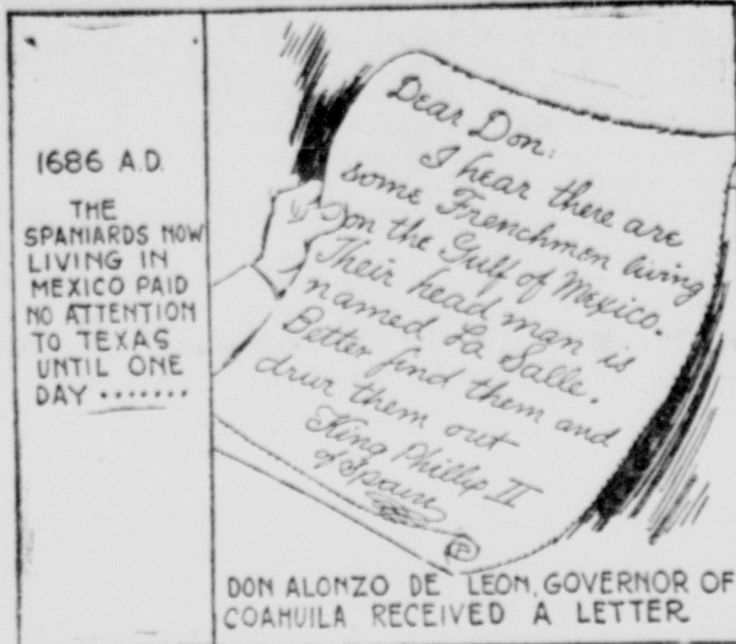 1686 A.D.
THE
SPANIARDS NOW
LIVING IN
MEXICO PAID
NO ATTENTION
TO TEXAS
UNTIL ONE
DAY .......
Dear Don:
I hear there are
some Frenchmen living
on the Gulf of Mexico.
Their head man is
named La Salle.
Better find them and
drive them out
King Phillip II
of Spain
DON ALONZO DE LEON, GOVERNOR OF
COAHUILA RECEIVED A LETTER